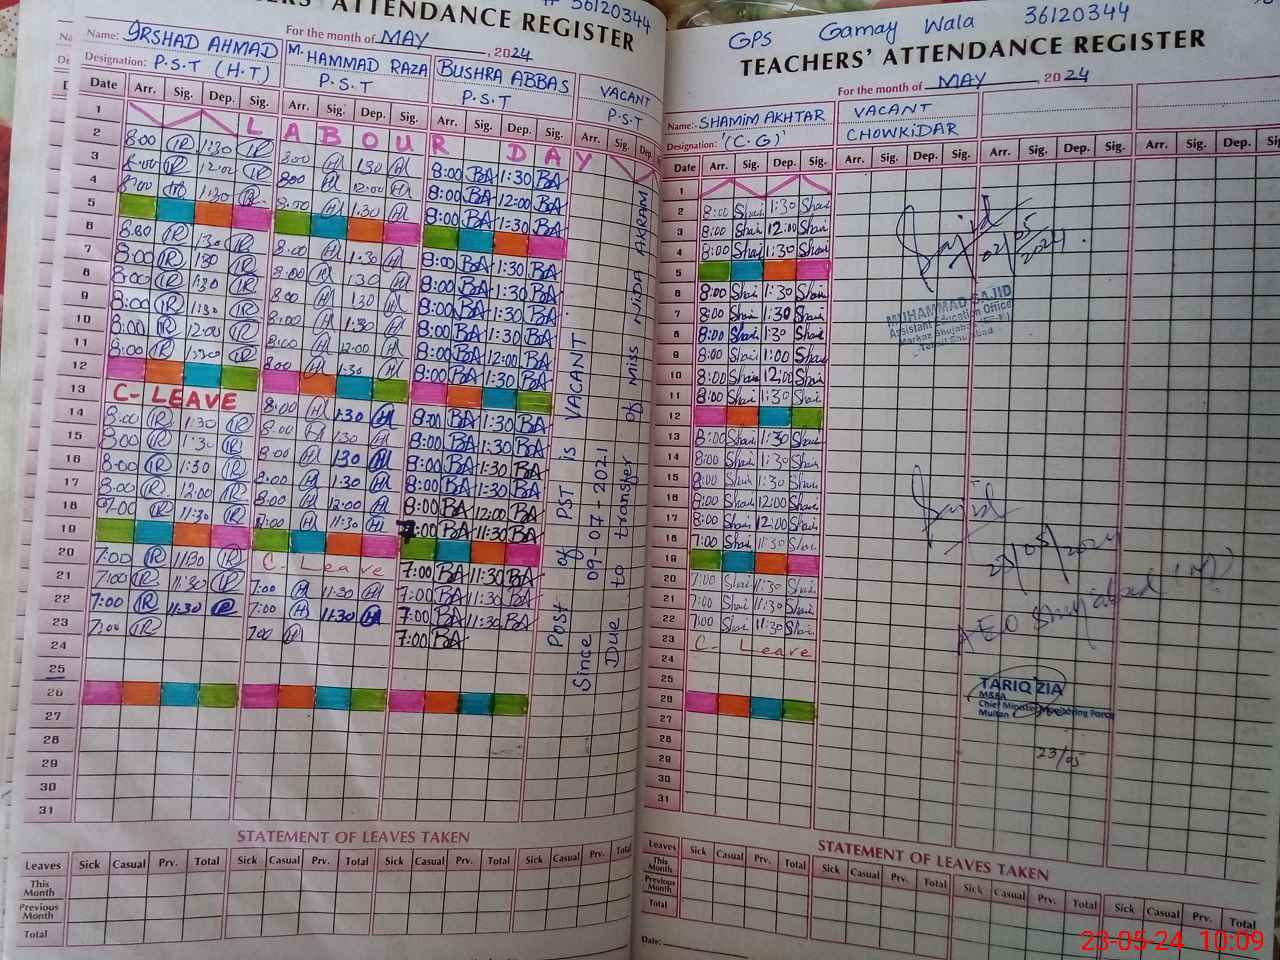 # 36120344
TEACHERS' ATTENDANCE REGISTER
For the month of MAY, 2024
Name: IRSHAD AHMAD M. HAMMAD RAZA BUSHRA ABBAS VACANT
Designation: P.S.T (H.T) P.S.T P.S.T P.S.T
Date Arr. Sig. Dep. Sig. Arr. Sig. Dep. Sig. Arr. Sig. Dep. Sig. Arr. Sig. Dep.
1 LABOUR DAY
2 8:00 IR 1:30 IR 8:00 H 1:30 H 8:00 BA 1:30 BA
3 8:00 IR 12:00 IR 8:00 H 12:00 H 8:00 BA 12:00 BA
4 8:00 IR 1:30 IR 8:00 H 1:30 H 8:00 BA 1:30 BA
5
6 8:00 IR 1:30 IR 8:00 H 1:30 H 8:00 BA 1:30 BA
7 8:00 IR 1:30 IR 8:00 H 1:30 H 8:00 BA 1:30 BA
8 8:00 IR 1:30 IR 8:00 H 1:30 H 8:00 BA 1:30 BA
9 8:00 IR 1:30 IR 8:00 H 1:30 H 8:00 BA 1:30 BA
10 8:00 IR 12:00 IR 8:00 H 12:00 H 8:00 BA 12:00 BA
11 8:00 IR 1:30 IR 8:00 H 1:30 H 8:00 BA 1:30 BA
12
13 C- LEAVE 8:00 H 1:30 H 8:00 BA 1:30 BA
14 8:00 IR 1:30 IR 8:00 H 1:30 H 8:00 BA 1:30 BA
15 8:00 IR 1:30 IR 8:00 H 1:30 H 8:00 BA 1:30 BA
16 8:00 IR 1:30 IR 8:00 H 1:30 H 8:00 BA 1:30 BA
17 8:00 IR 12:00 IR 8:00 H 12:00 H 8:00 BA 12:00 BA
18 7:00 IR 11:30 IR 7:00 H 11:30 H 7:00 BA 11:30 BA
19
20 7:00 IR 11:30 IR C- Leave 7:00 BA 11:30 BA
21 7:00 IR 11:30 IR 7:00 H 11:30 H 7:00 BA 11:30 BA
22 7:00 IR 11:30 IR 7:00 H 11:30 H 7:00 BA 11:30 BA
23 7:00 IR 7:00 H 7:00 BA
24
25
26
27
28
29
30
31
Post of PST is VACANT
Since 09-07-2021
Due to transfer of MISS NIDA AKRAM
STATEMENT OF LEAVES TAKEN
Leaves Sick Casual Prv. Total Sick Casual Prv. Total Sick Casual Prv. Total Sick Casual Prv. Total
This Month
Previous Month
Total
GPS Gamay Wala 36120344
TEACHERS' ATTENDANCE REGISTER
For the month of MAY 2024
Name:- SHAMIM AKHTAR VACANT
Designation: '(C.G)' CHOWKIDAR
Date Arr. Sig. Dep. Sig. Arr. Sig. Dep. Sig. Arr. Sig. Dep. Sig. Arr. Sig. Dep.
1
2 8:00 Sham 1:30 Sham
3 8:00 Sham 12:00 Sham
4 8:00 Sham 1:30 Sham
5
6 8:00 Sham 1:30 Sham
7 8:00 Sham 1:30 Sham
8 8:00 Sham 1:30 Sham
9 8:00 Sham 1:00 Sham
10 8:00 Sham 12:00 Sham
11 8:00 Sham 1:30 Sham
12
13 8:00 Sham 1:30 Sham
14 8:00 Sham 1:30 Sham
15 8:00 Sham 1:30 Sham
16 8:00 Sham 12:00 Sham
17 8:00 Sham 12:00 Sham
18 7:00 Sham 11:30 Sham
19
20 7:00 Sham 11:30 Sham
21 7:00 Sham 11:30 Sham
22 7:00 Sham 11:30 Sham
23 C- Leave
24
25
26
27
28
29
30
31
Sajid
02/05/2024
MUHAMMAD SAJID
Assistant Education Officer
Markaz Shujabad
Tehsil Shujabad
Sajid
/05/2024
AEO Shujabad (M)
TARIQ ZIA
M&EA
Chief Minister Monitoring Force
Multan
23/05
STATEMENT OF LEAVES TAKEN
Leaves Sick Casual Prv. Total Sick Casual Prv. Total Sick Casual Prv. Total Sick Casual Prv. Total
This Month
Previous Month
Total
Date:
23-05-24 10:09